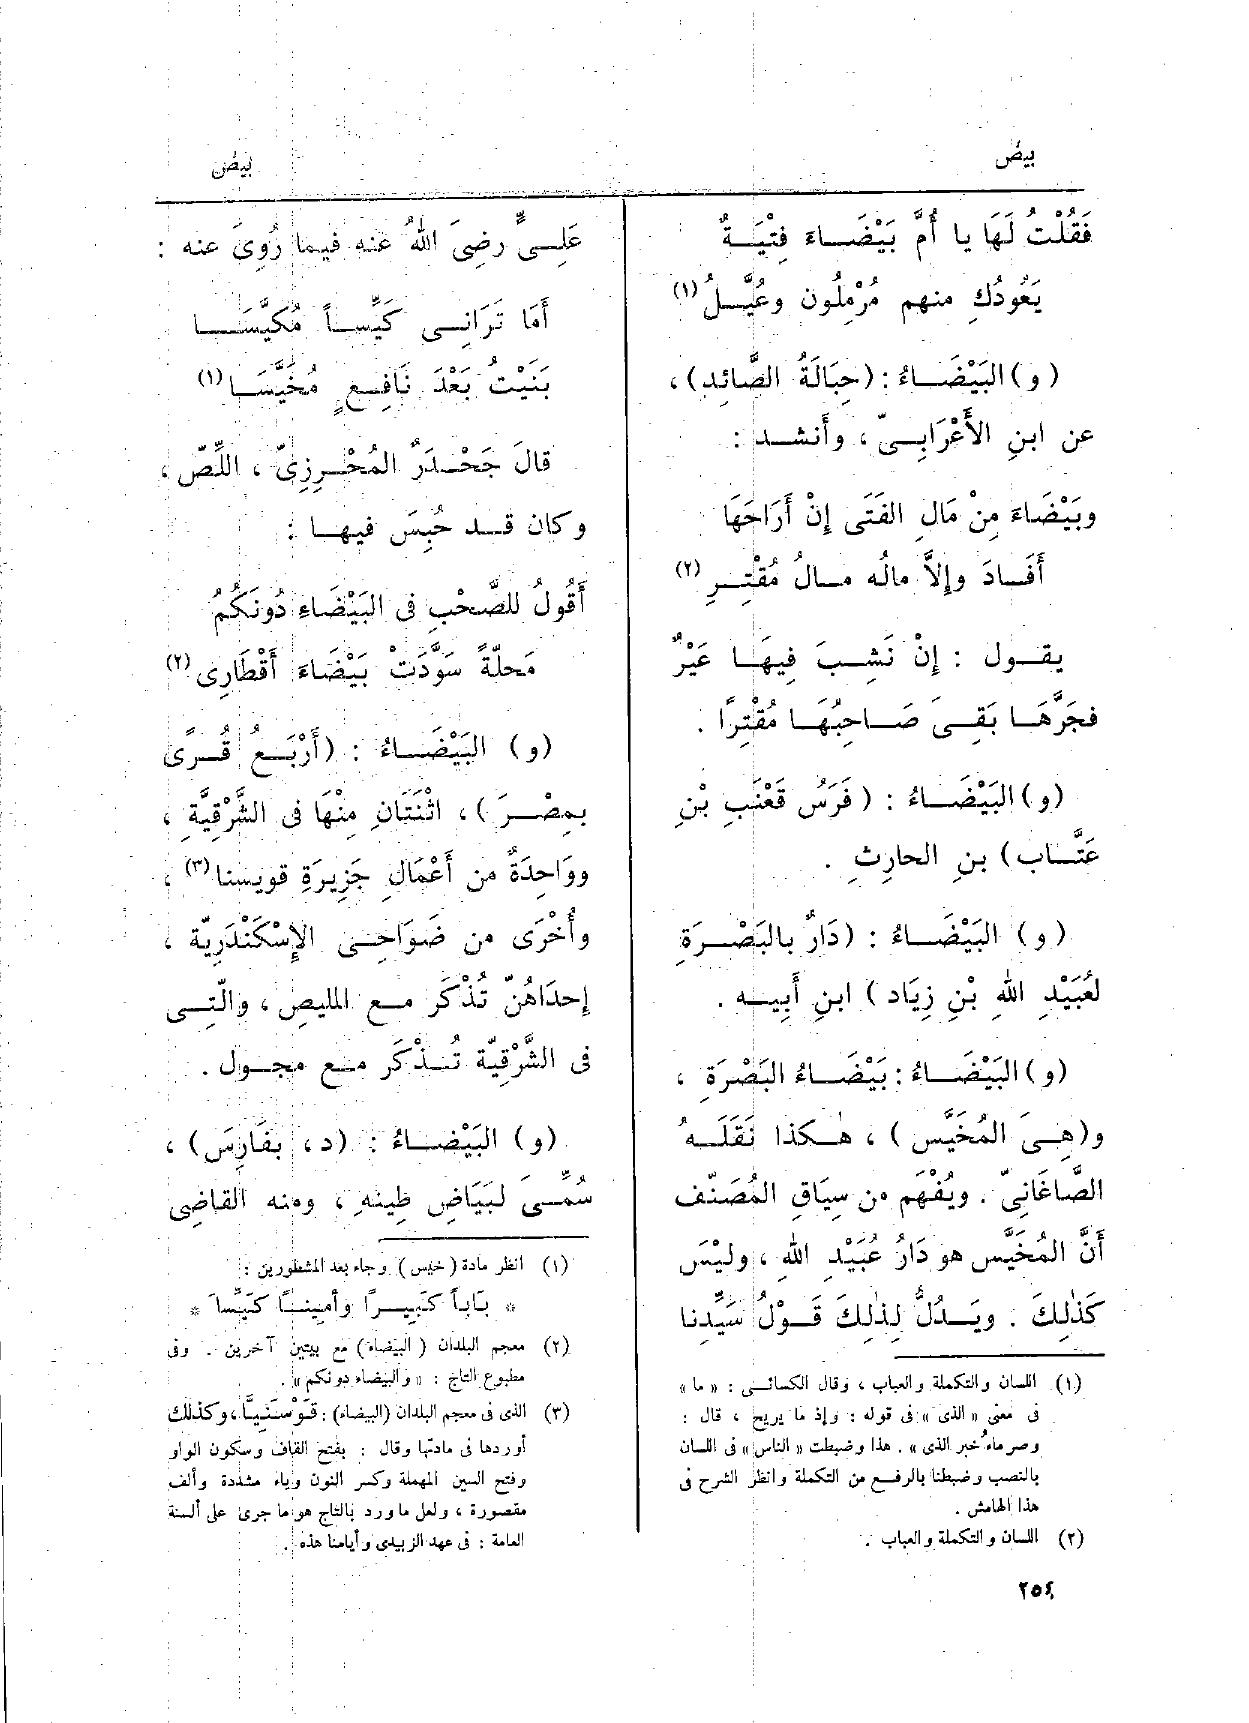 بيض
بيض
فَقُلْتُ لَهَا يا أُمَّ بَيْضَـاءَ فِتْيَـةٌ
يَعُودُكِ منهم مُرْمِلُون وعُيَّـلُ (١)
(و) البَيْضَـاءُ : (حِبَالَةُ الصَّائد) ،
عن ابنِ الأَعْرَابِـىّ ، وأَنشـد :
وبَيْضَاءَ مِنْ مَالِ الفَتَى إِنْ أَرَاحَهَا
أَفَـادَ وإِلاَّ مالُه مـالُ مُقْتِـرِ (٢)
يقـول : إِنْ نَشِـبَ فِيهَـا عَيْرٌ
فجَرَّهَـا بَقِـىَ صَـاحِبُهَـا مُقْتِرًا .
(و) البَيْضَـاءُ : (فَرَسُ قَعْنَبِ بْنِ
عَتَّـاب) بنِ الحارِثِ .
(و) البَيْضَـاءُ : (دَارٌ بالبَصْـرَةِ
لعُبَيْدِ اللهِ بْنِ زِيَاد) ابنِ أَبِيـه .
(و) البَيْضَـاءُ : بَيْضَـاءُ البَصْرَةِ ،
و(هِـىَ المُخَيَّس) ، هٰـكذا نَقَلَـهُ
الصَّاغَانِىّ . ويُفْهَم من سِيَاقِ المُصَنّف
أَنَّ المُخَيَّس هو دَارُ عُبَيْدِ اللهِ ، وليْسَ
كَذٰلِكَ . ويَـدُلُّ لِذٰلِكَ قَـوْلُ سَيِّدِنا
(١) اللسان والتكملة والعباب ، وقال الكسائـى : « ما »
فى معنى « الذى » فى قوله : وإذ ما يريح ، قال :
وصرماءُ خبر الذى » . هذا وضبطت « الناس » فى اللسان
بالنصب وضبطنا بالرفع من التكملة وانظر الشرح فى
هذا الهامش .
(٢) اللسان والتكملة والعباب .
عَلِـىٍّ رضِىَ اللهُ عنه فيما رُوِىَ عنه :
أَمَا تَرَانِـى كَيِّسـاً مُكَيَّسَـا
بَنَيْتُ بَعْدَ نَافِـعٍ مُخَيَّسَـا (١)
قالَ جَحْـدَرٌ المُحْـرِزِىّ ، اللِّصّ ،
وكان قـد حُبِسَ فيهـا :
أَقُولُ للصَّحْبِ فى البَيْضَاءِ دُونَكُمُ
مَحلّةً سَوَّدَتْ بَيْضَاءَ أَقْطَارِى (٢)
(و) البَيْضَـاءُ : (أَرْبَـعُ قُـرًى
بمِصْـرَ) ، اثْنَتَانِ مِنْهَا فى الشَّرْقِيَّةِ ،
ووَاحِدَةٌ من أَعْمَالِ جَزِيرَةِ قويسنا (٣) ،
وأُخْرَى من ضَوَاحِـى الإِسْكَنْدَرِيّة ،
إِحدَاهُنّ تُذْكَر مـع المليص ، والّتِـى
فى الشَّرْقِيّة تُـذْكَر مـع مجـول .
(و) البَيْضـاءُ : (د ، بفَارِسَ) ،
سُمِّـىَ لبَيَاضِ طِينِهِ ، ومنه القَاضِى
(١) انظر مادة (خيس) وجاء بعد المشطورين :
* بَاباً كَبِيـرًا وأَمِينـاً كَيِّسَا *
(٢) معجم البلدان (البيضاء) مع بيتين آخرين . وفى
مطبوع التاج : « والبيضاء دونكم » .
(٣) الذى فى معجم البلدان (البيضاء) : قَوْسَنِيَّا ، وكذلك
أوردها فى مادتها وقال : بفتح القاف وسكون الواو
وفتح السين المهملة وكسر النون وياء مشددة وألف
مقصورة ، ولعل ما ورد بالتاج هو ما جرى على ألسنة
العامة : فى عهد الزبيدى وأيامنا هذه .
٢٥٤